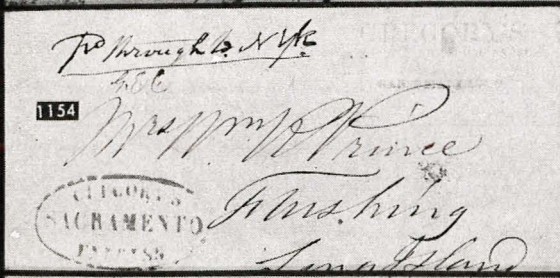 Pd through to N York
1154
Mrs Wm R Prince
Flushing
Long Island
GREGORY'S
SACRAMENTO
EXPRESS